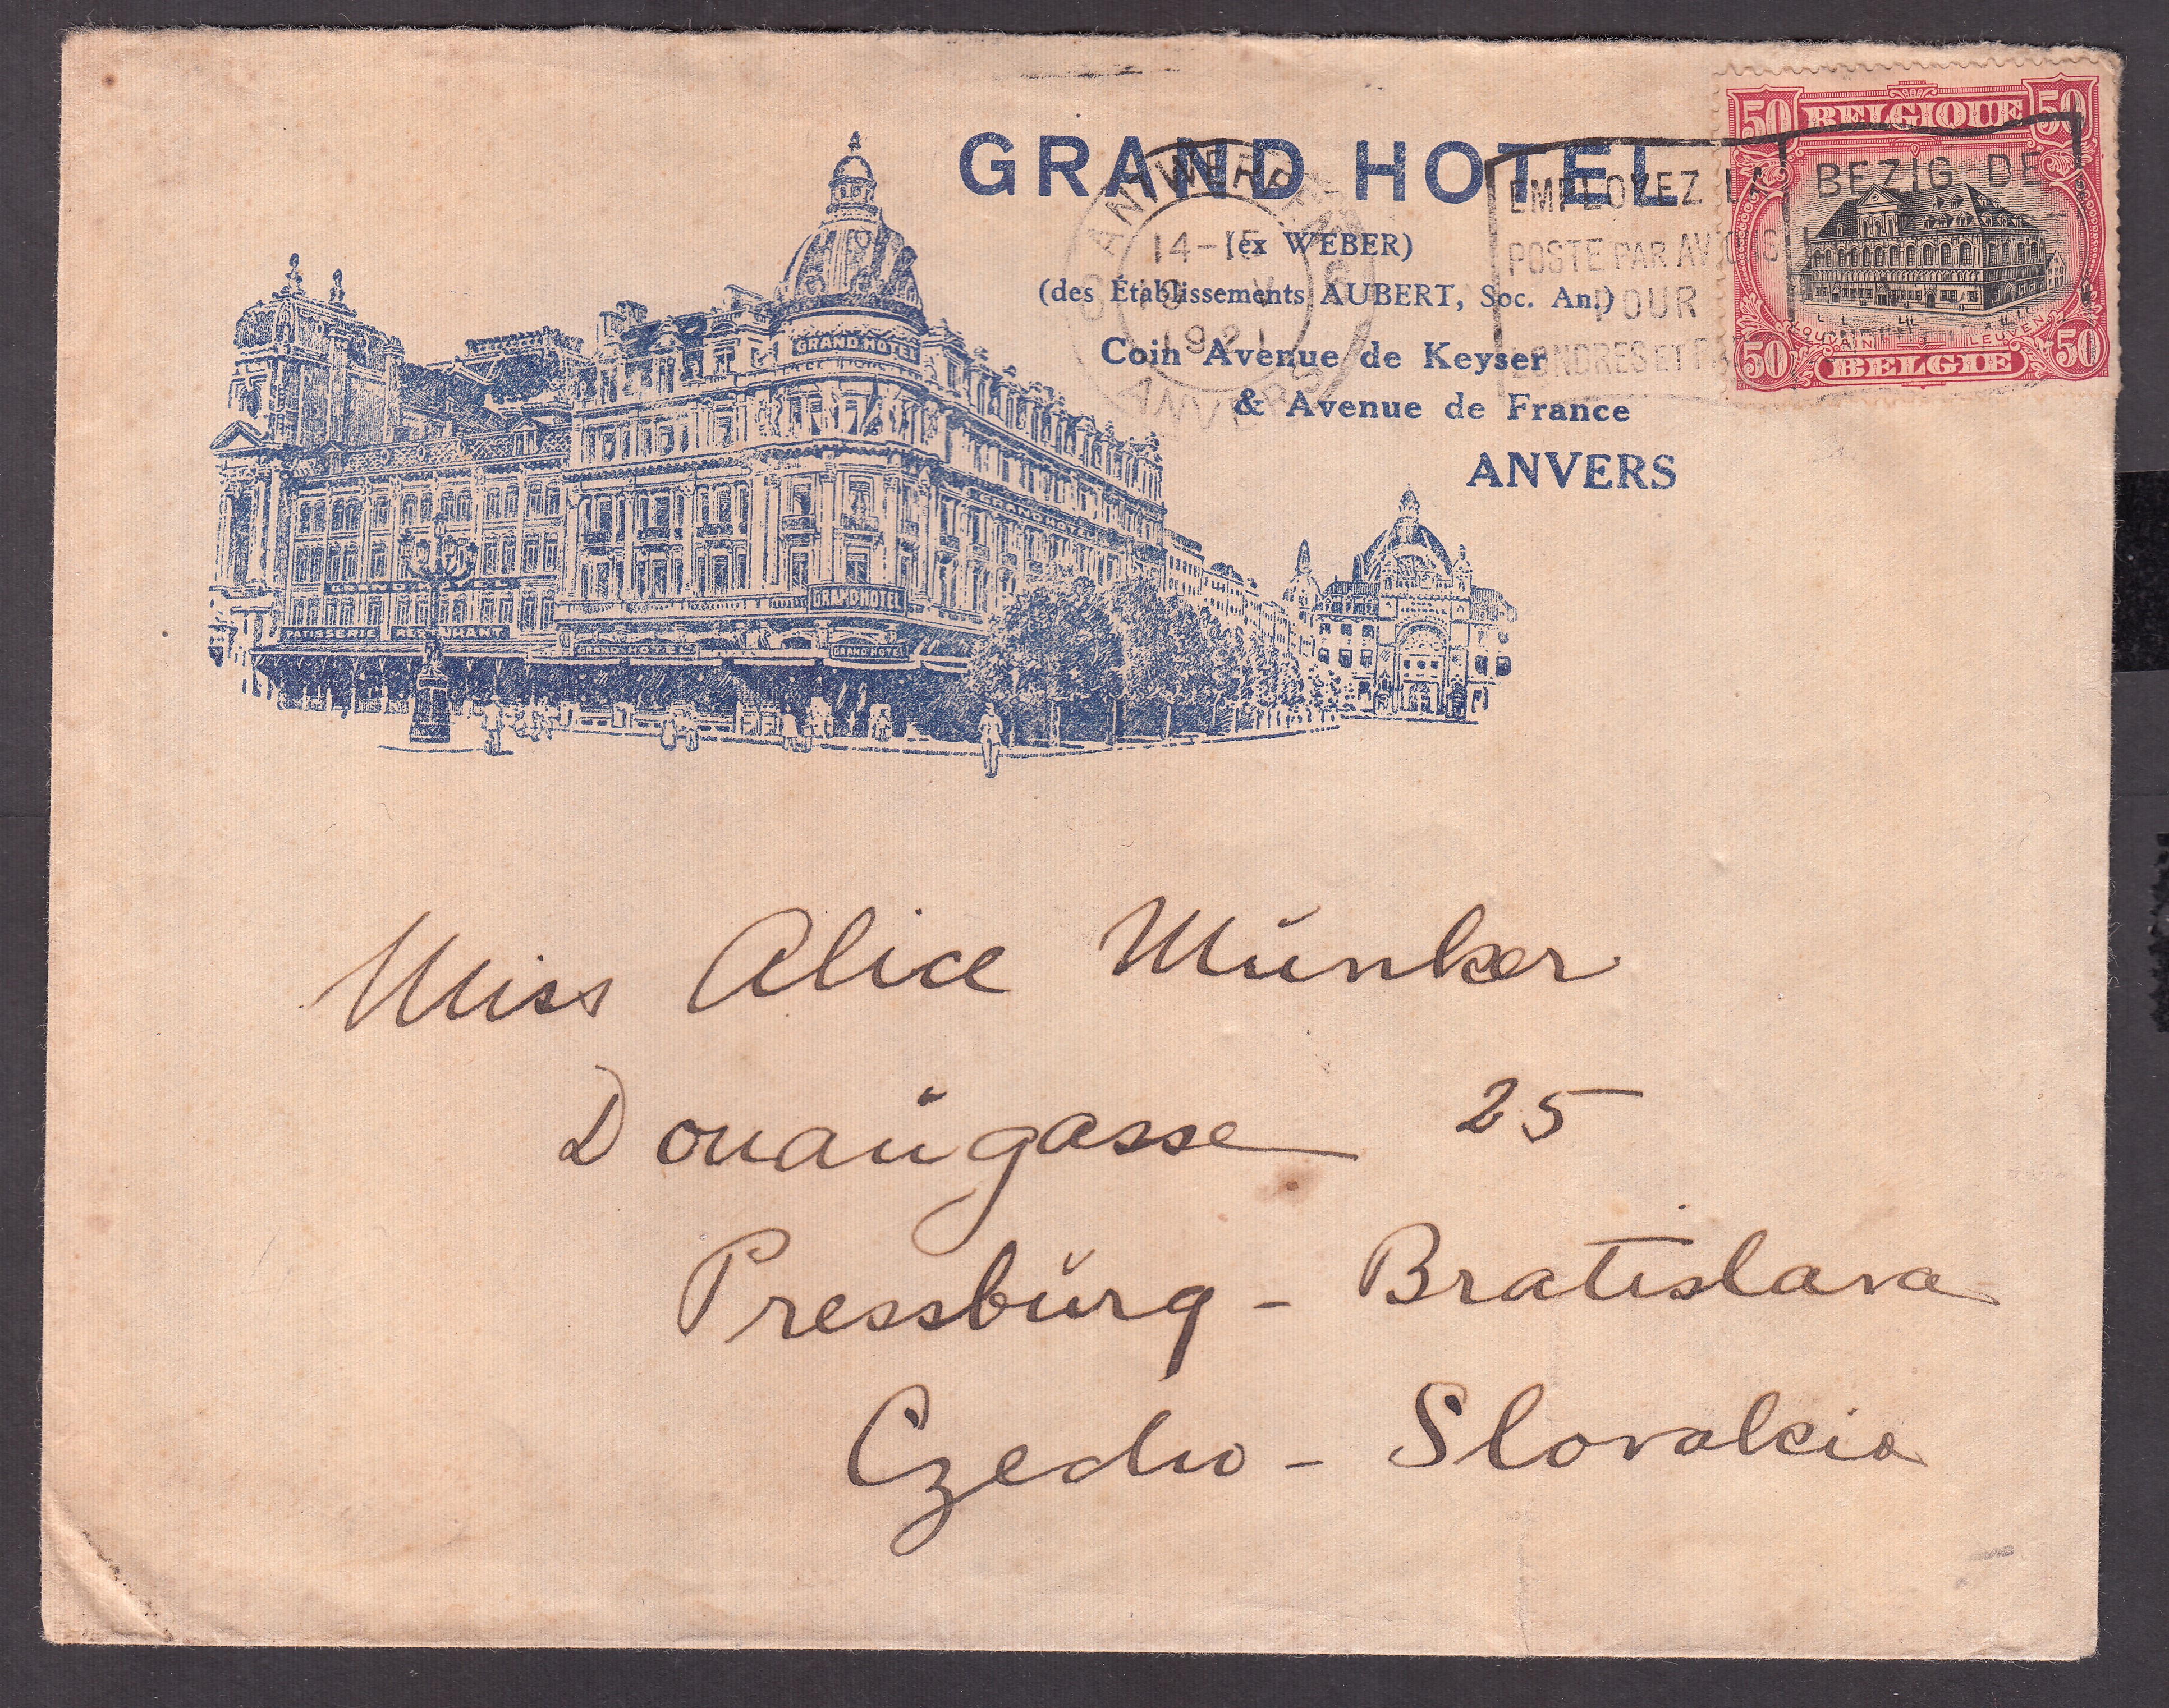 GRAND HOTEL
(ex WEBER)
(des Établissements AUBERT, Soc. An.)
Coin Avenue de Keyser
& Avenue de France
ANVERS
ANTWERPEN
14-15
V
1921
ANVERS
EMPLOYEZ LA
POSTE PAR AVIONS
POUR
LONDRES ET
BEZIG DE
50 BELGIQUE 50
LOUVAIN LEUVEN
50 BELGIE 50
GRAND HOTEL
GRAND HOTEL
GRAND HOTEL
PATISSERIE RESTAURANT
GRAND HOTEL
GRAND HOTEL
Miss Alice Münker
Donaugasse 25
Pressburg - Bratislava
Czecho - Slovakia